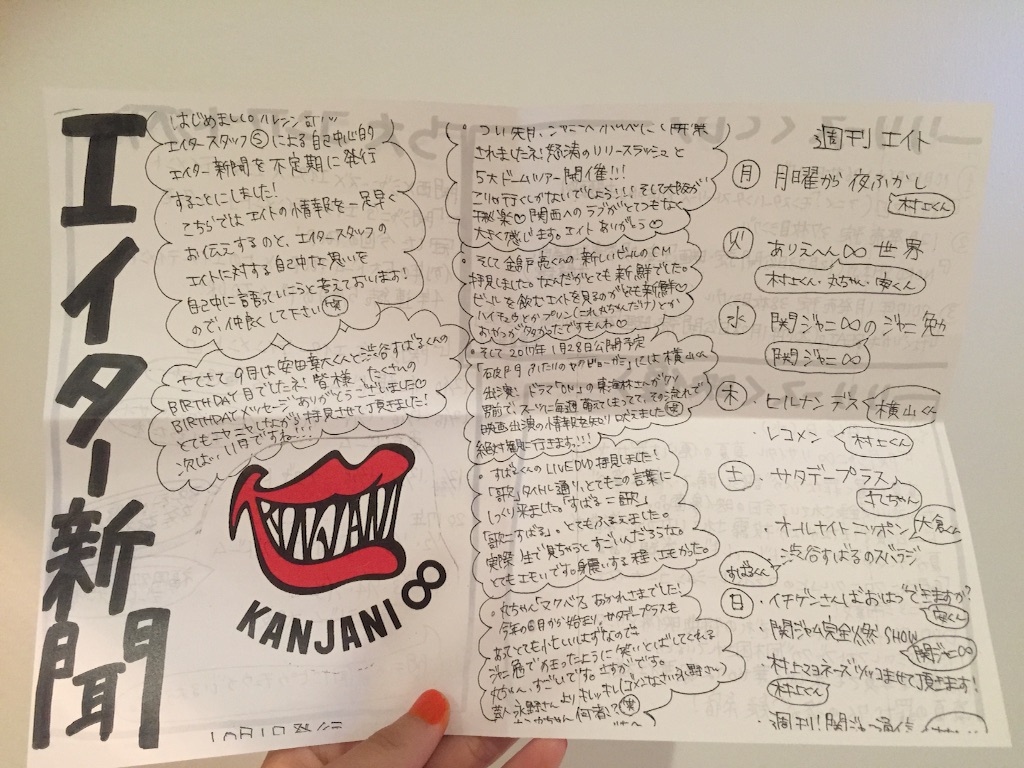 エイター新聞
はじめまして。
エイタースタッフ
による自己中心的
エイター新聞を不定期に発行
することにしました!
こちらではエイトの情報を一足早く
お伝えするのと、エイタースタッフの
エイトに対する自己中な思いを
自己中に言っていこうと考えております!
ので、仲良くして下さい(笑)
さてさて9月は安田章大くんと渋谷すばるくんの
BIRTHDAY月でしたネ!皆様、たくさんの
BIRTHDAYメッセージありがとうございました♡
とてもニヤニヤしながら拝見させて頂きました!
次は、11月ですね!!!
KANJANI
KANJANI∞
されましたネ!怒涛のリリースラッシュと
5大ドームツアー開催!!!
こりゃ行くしかないでしょう!!!そして大阪が
千秋楽♡関西へのラブがとてつもなく
大きく感じます。エイトありがとう♡
・そして錦戸亮くんの新しいビールのCM
拝見しました。なんだかとても新鮮でした。
ビールを飲むエイトを見るのがとても新鮮♡
ハイチュウとかプリン(これ丸ちゃんだけ)とか
おやつが多かったですもんね♡
・そして2017年1月28日公開予定
「破門 ふたりのヤクビョーガミ」には横山くん
出演。ドラマ「ON」の東海林さんがツリ
眉前で、スーツに毎週萌えてまってて、その流れで
映画出演の情報を知り
絶対観に行きます!!!
・すばるくんのLIVE DVD拝見しました!
「歌」タイトル通り、とてもこの言葉に
しっくり来ました。「すばる=歌」
「歌=すばる」。とてもふるえました。
実際、生で見ちゃうとすごいんだろうな。
とてもエモいです。身震いする程、エモかった。
・丸ちゃん「マクベス」おつかれさまでした!
今年の6月から始まり、サタデープラスも
あってとても忙しいはずなので
ジャニ勉でのまったように笑いとばしてくれる
丸ちゃん、すごいです。さすがです。
芸人永野さんよりキレッキレ(ゴメンなさい永野さん)
週刊エイト
月 月曜から夜ふかし
村上くん
火 ありえへん∞世界
村上くん・丸ちゃん・安くん
水 関ジャニ∞のジャニ勉
関ジャニ∞
木 ・ヒルナンデス
横山くん
・レコメン
村上くん
土 サタデープラス
丸ちゃん
・オールナイトニッポン
大倉くん
・渋谷すばるのスバラジ
すばるくん
日 ・イチゲンさんばおはつできますか?
安くん
・関ジャム完全燃SHOW
関ジャニ∞
・村上マヨネーズツッコませて頂きます!
村上くん
・週刊!関ジャニ通信